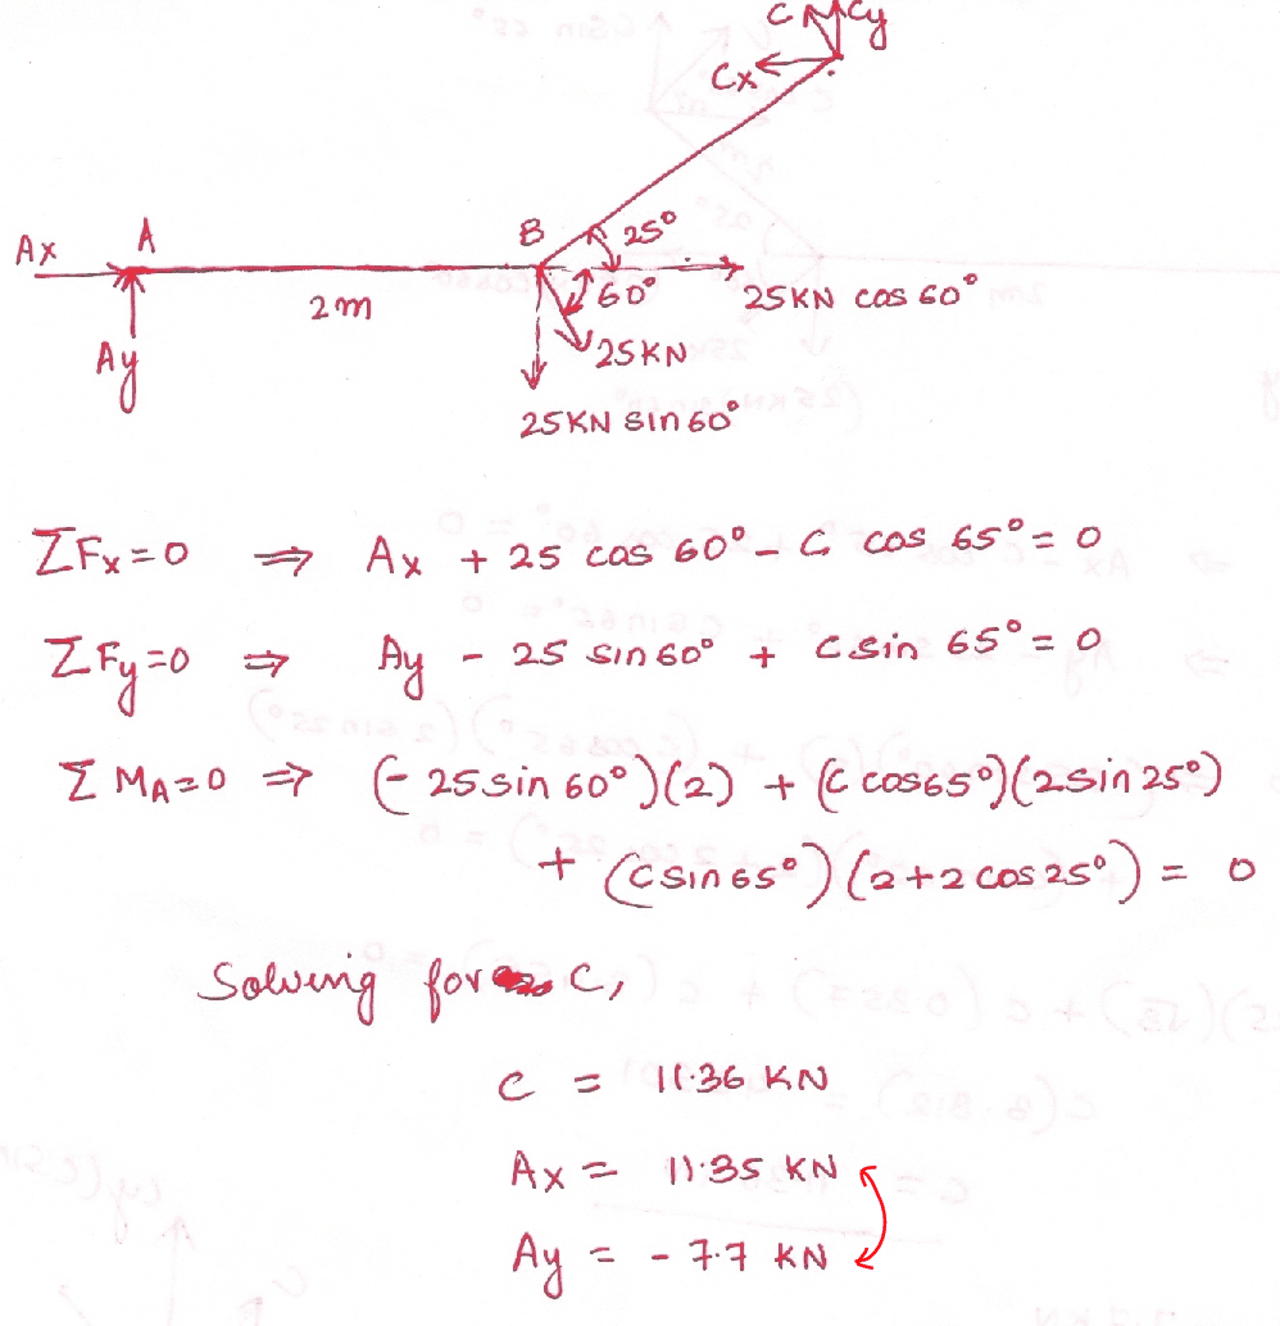 C Cy
Cx
Ax A B 25°
2m 60° 25KN cos 60°
Ay 25KN
25KN sin60°
ΣFx=0 ⇒ Ax + 25 cos 60° - C cos 65° = 0
ΣFy=0 ⇒ Ay - 25 sin60° + C sin 65° = 0
ΣMA=0 ⇒ (- 25 sin 60°)(2) + (C cos65°)(2 sin 25°)
+ (C sin 65°)(2+2 cos 25°) = 0
Solving for C,
C = 11.36 KN
Ax = 11.35 KN
Ay = - 7.7 KN